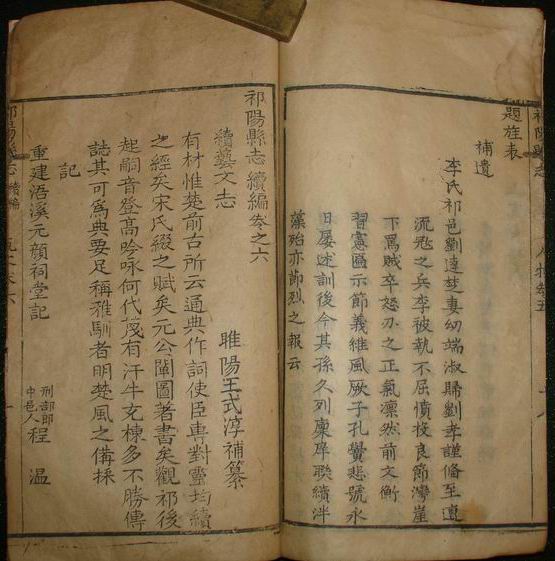 題旌表
補遺
李氏祁邑劉達妻幼端淑歸劉孝謹俻至遭
流冦之兵李被執不屈憤投良節灣崖
下為賊卒怒刃之正氣凛然前文衡
習憲匾示節義維風厥子孔黌悲號永
日屡述訓後今其孫久列廪庠聯續泮
藻殆亦節烈之報云
祁陽縣志續編卷之六
續藝文志
睢陽王式淳補纂
有材惟楚前古所云通典作詞使臣專對靈均續
之經矣宋氏綴之賦矣元公闡圖著書矣觀祁後
起嗣音登高吟咏何代蔑有汗牛充棟多不勝傳
誌其可為典要足稱雅馴者明楚風之俻採
記
重建浯溪元顔祠堂記
刑部郎中邑人程温
祁陽縣志續編